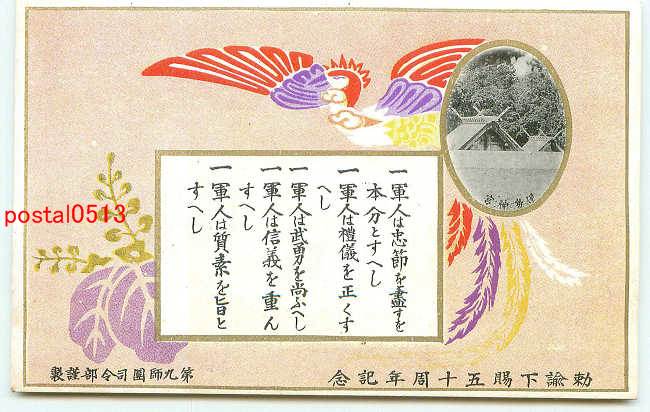 一軍人は忠節を盡すを
本分とすへし
一軍人は禮儀を正くす
へし
一軍人は武勇を尚ふへし
一軍人は信義を重ん
すへし
一軍人は質素を旨と
すへし
伊勢神宮
勅諭下賜五十周年記念
第九師團司令部謹製
postal0513